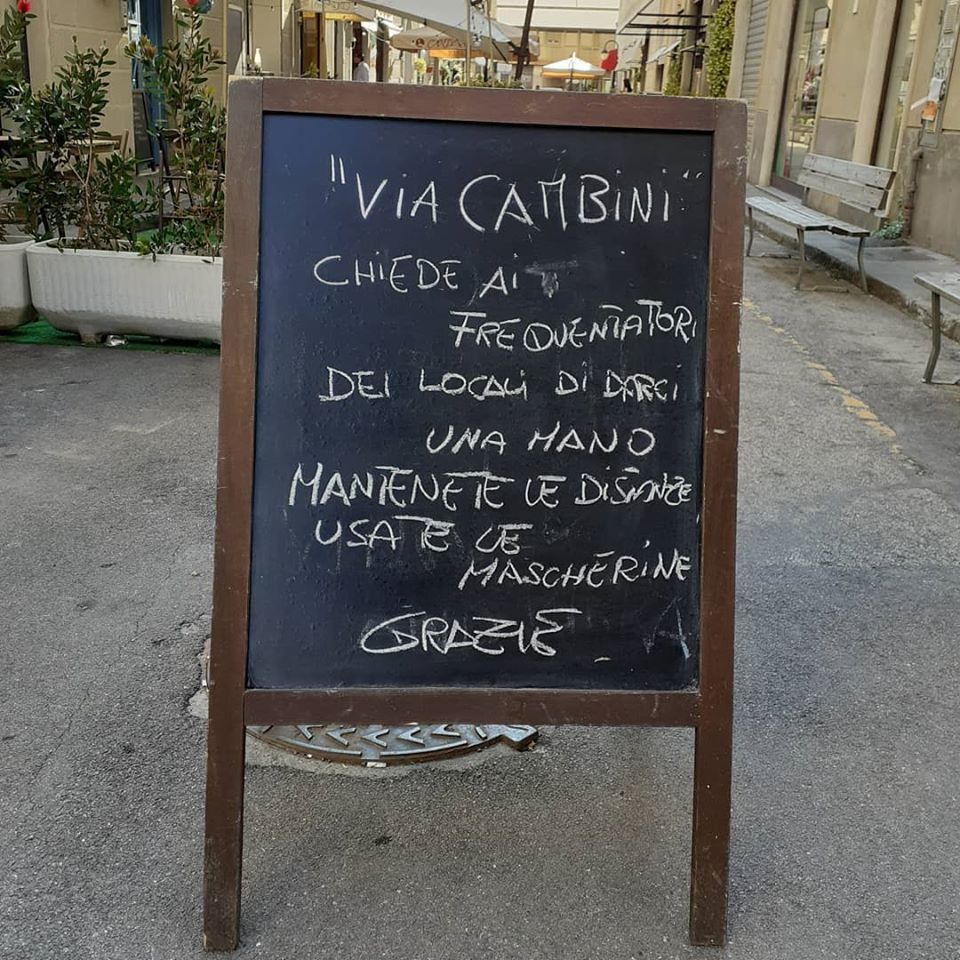 "VIA CAMBINI"
CHIEDE AI
FREQUENTATORI
DEI LOCALI DI DARCI
UNA MANO
MANTENETE LE DISTANZE
USATE LE
MASCHERINE
GRAZIE